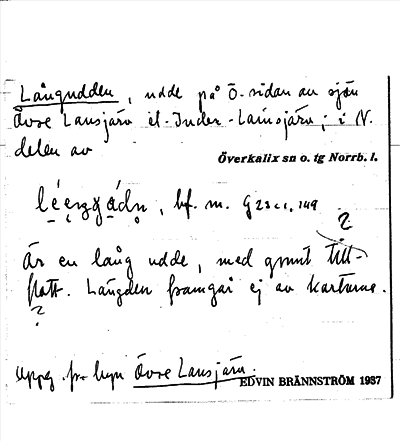 Långudden, udde på Ö. sidan av sjön
Övre Lansjärv el. Inder-Lainsjärv; i N.
delen av
Överkalix sn o. tg Norrb. l.
bf. m. G 23 c 1, 149
?
Är en lång udde, med grunt till-
flott. Längden framgår ej av kartorna.
?
Uppg. fr. byn Övre Lansjärv.
EDVIN BRÄNNSTRÖM 1937